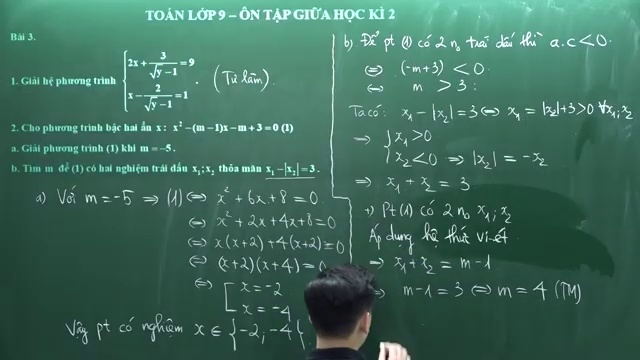 TOÁN LỚP 9 – ÔN TẬP GIỮA HỌC KÌ 2
Bài 3.
1. Giải hệ phương trình { 2x + 3/√(y-1) = 9
x - 2/√(y-1) = 1 . (Tự làm).
2. Cho phương trình bậc hai ẩn x : x² – (m – 1)x – m + 3 = 0 (1)
a. Giải phương trình (1) khi m = –5 .
b. Tìm m để (1) có hai nghiệm trái dấu x₁; x₂ thỏa mãn x₁ – |x₂| = 3 .
a) Với m = -5 ⇒ (1) ⇔ x² + 6x + 8 = 0
⇔ x² + 2x + 4x + 8 = 0
⇔ x(x+2) + 4(x+2) = 0
⇔ (x+2)(x+4) = 0
⇔ [ x = -2
x = -4
Vậy pt có nghiệm x ∈ {-2, -4}.
b) Để pt (1) có 2 no trái dấu thì a.c < 0.
⇔ (-m+3) < 0
⇔ m > 3 :
Ta có: x₁ - |x₂| = 3 ⇔ x₁ = |x₂| + 3 > 0 ∀x₁, x₂
⇒ { x₁ > 0
x₂ < 0 ⇒ |x₂| = -x₂
⇒ x₁ + x₂ = 3
+) Pt (1) có 2 no x₁; x₂
Áp dụng hệ thức Vi-ét
⇒ x₁ + x₂ = m - 1
⇒ m - 1 = 3 ⇔ m = 4 (TM)